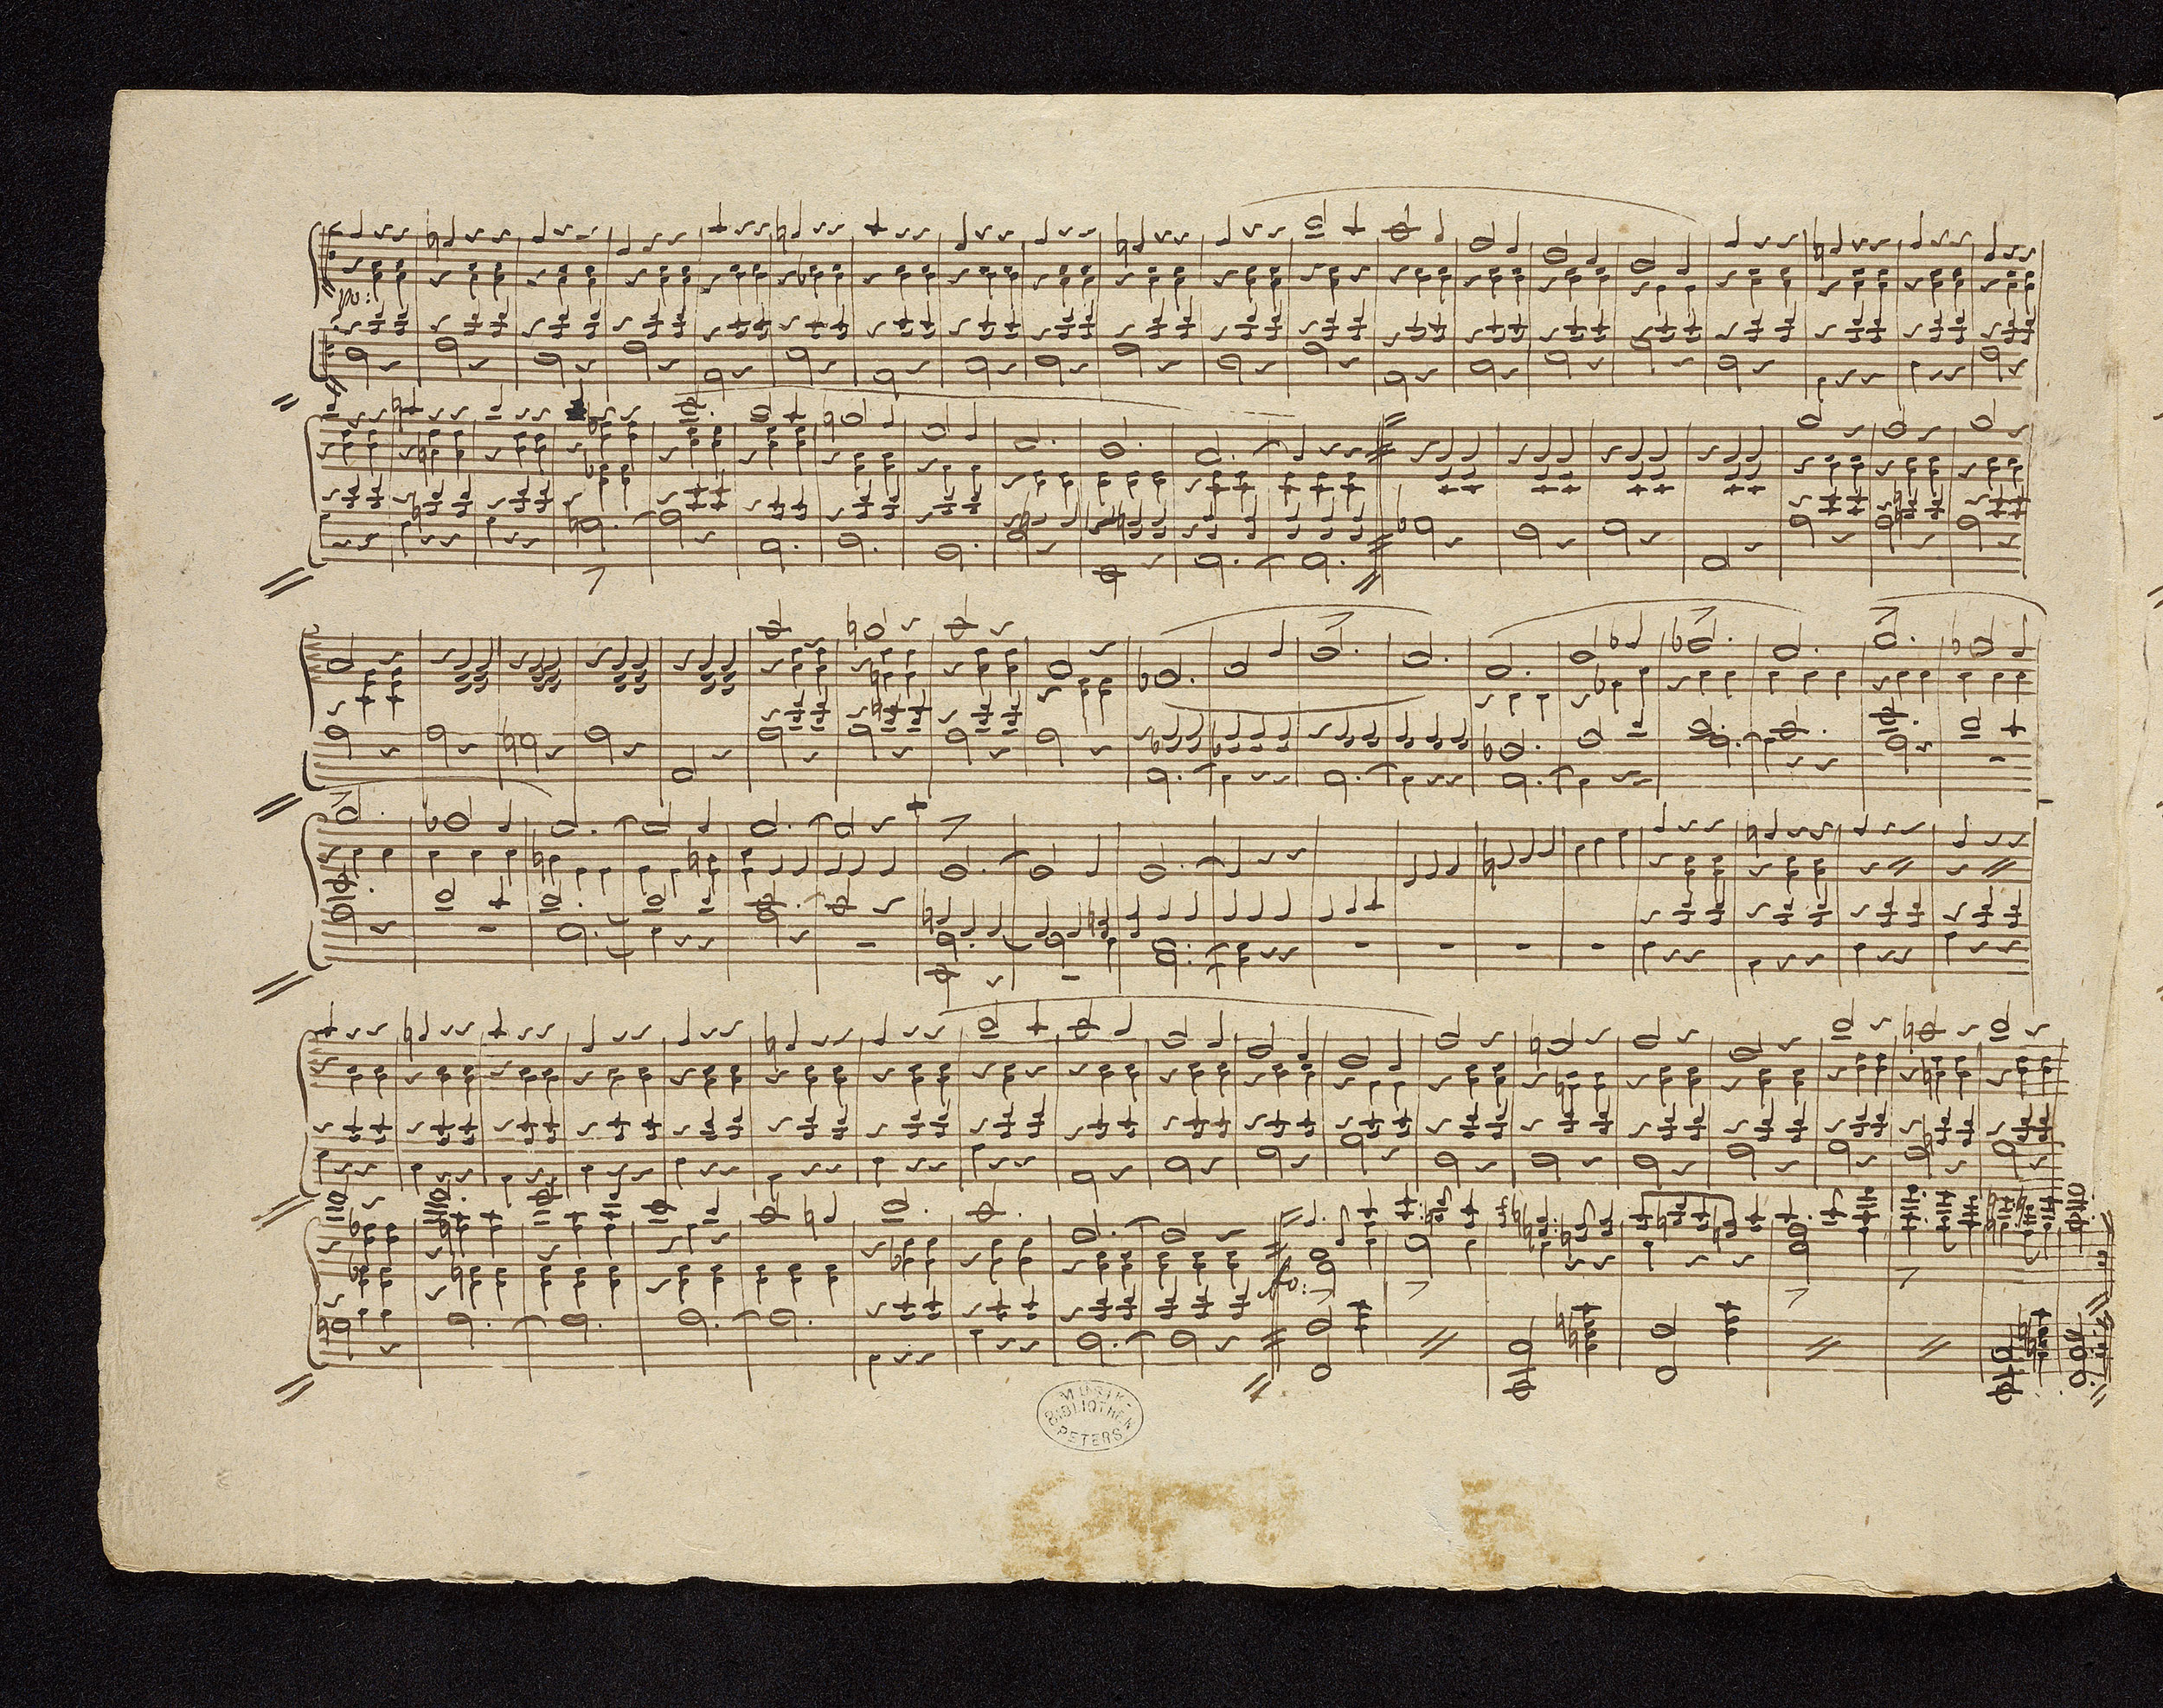 po:
fo:
MUSIK-
BIBLIOTHEK
PETERS